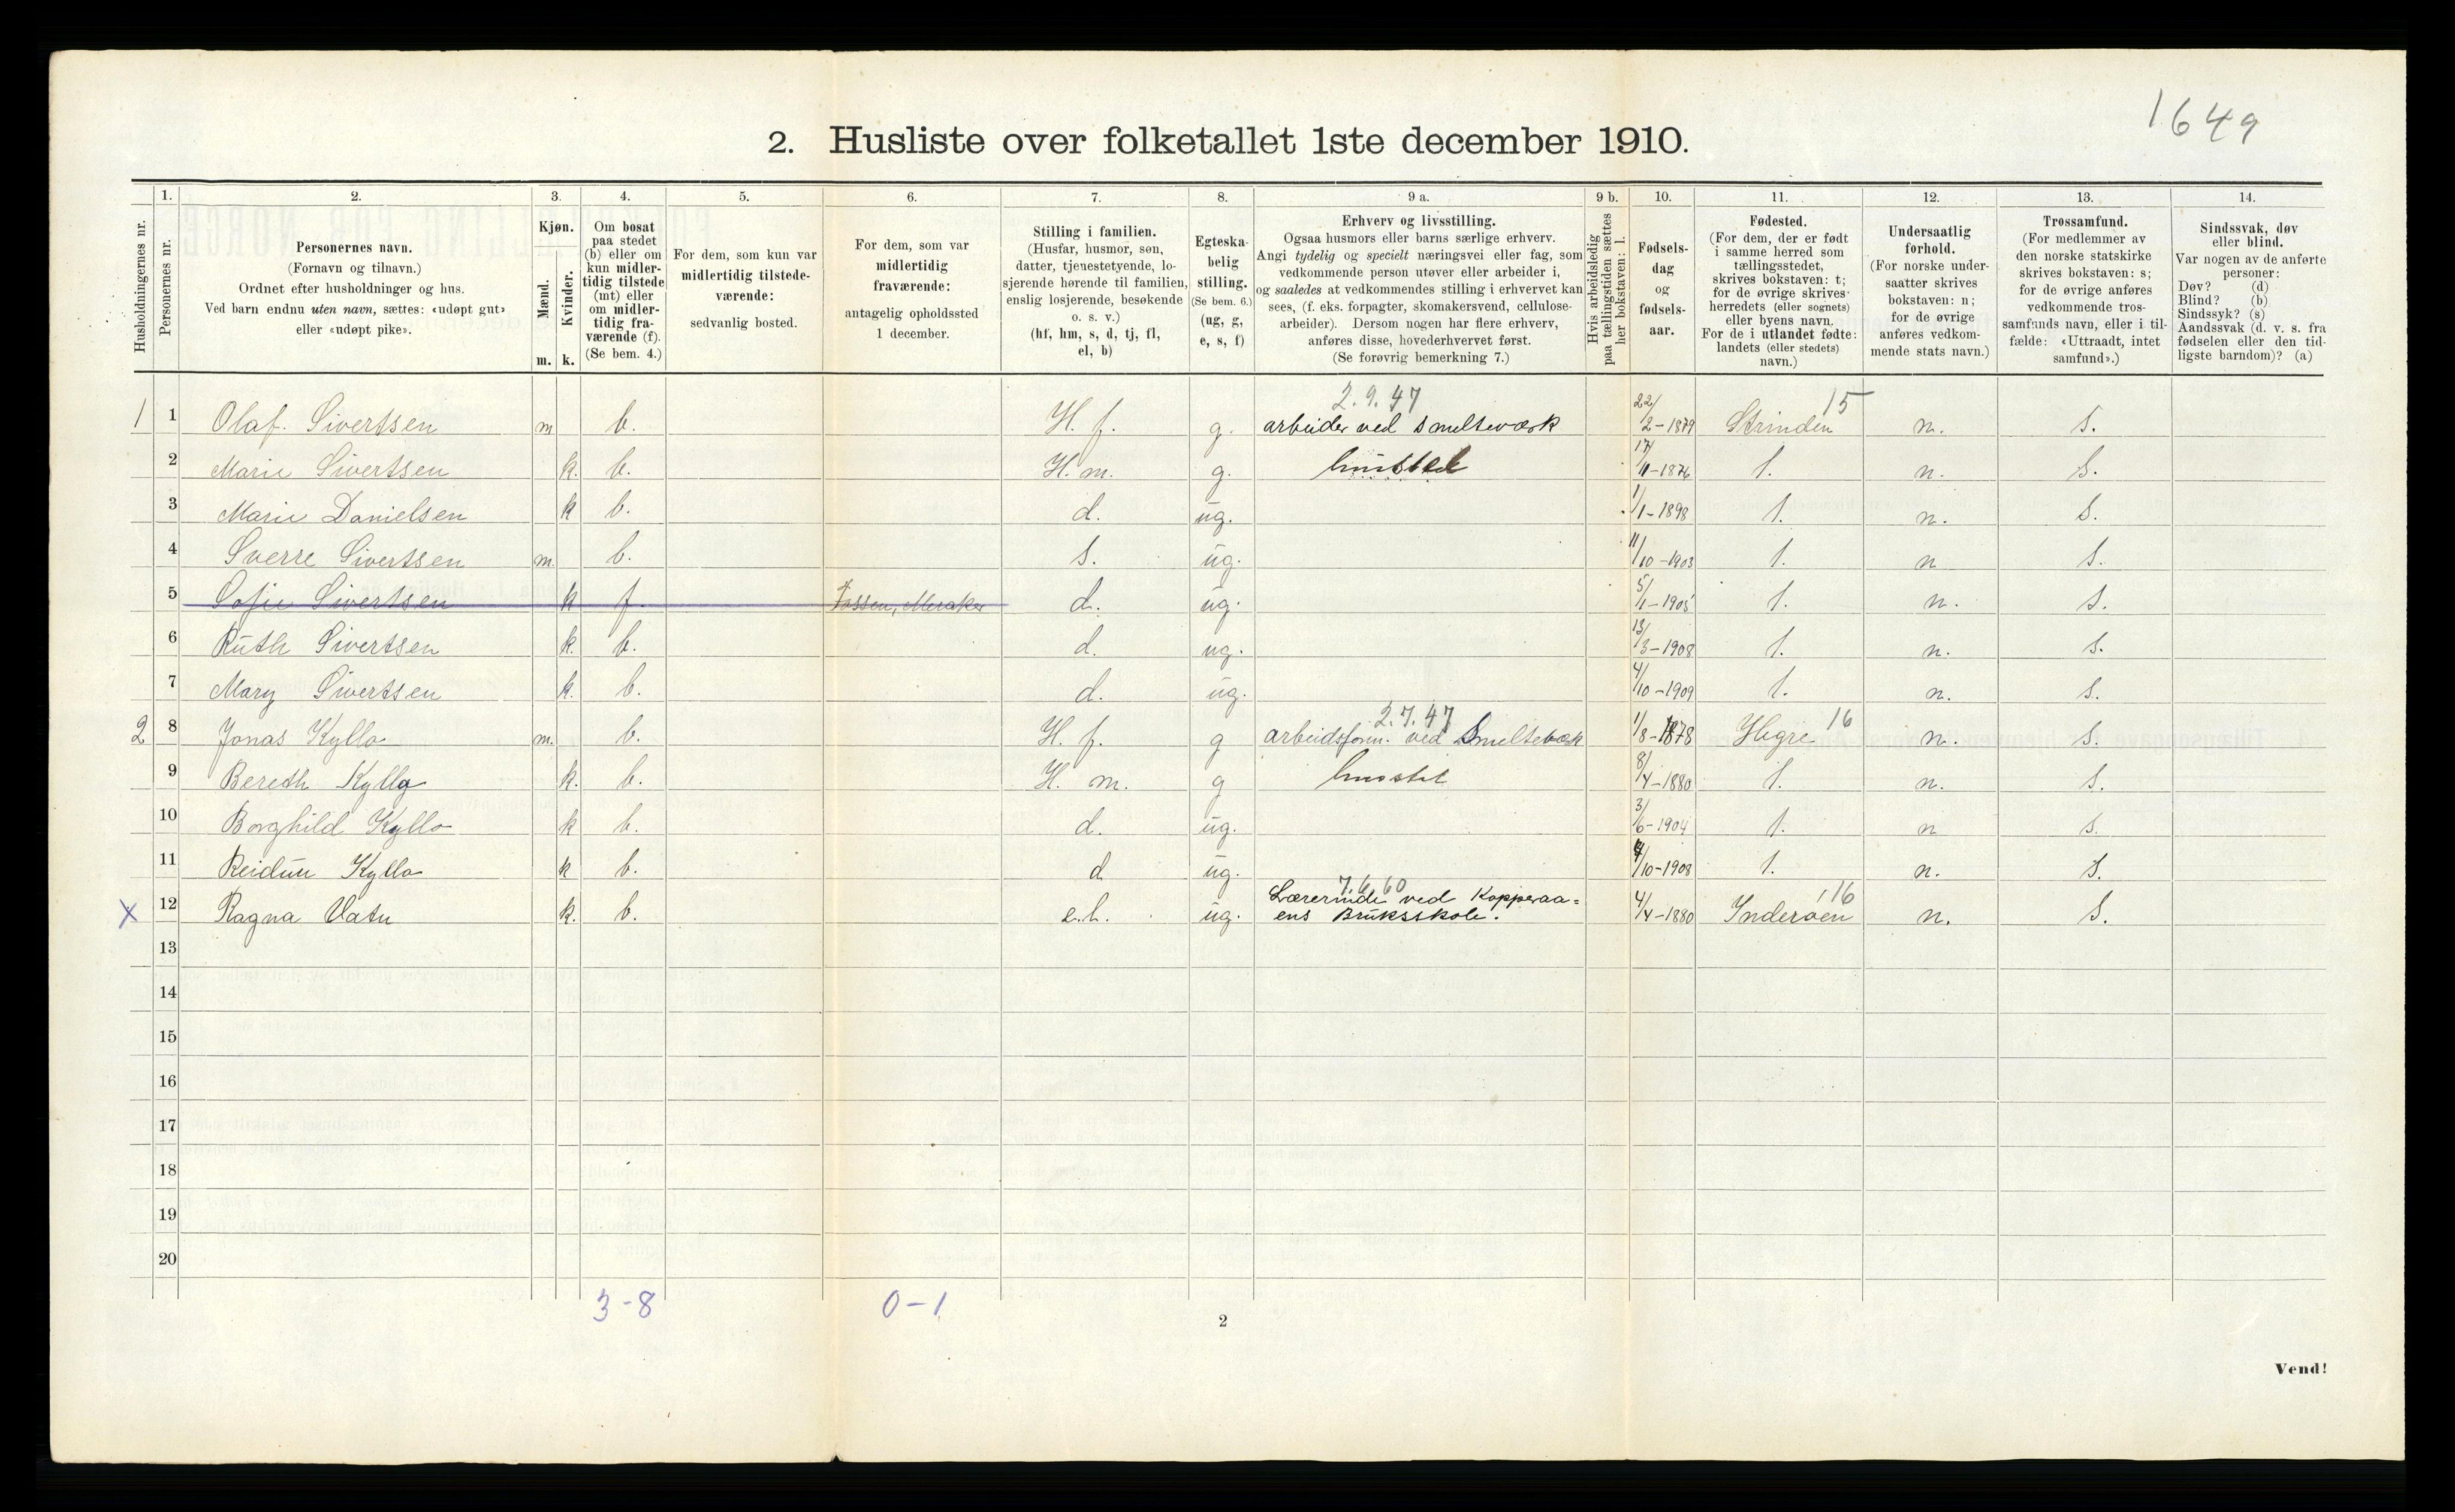 1649
2. Husliste over folketallet 1ste december 1910.
Husholdningernes nr.
1.
Personernes nr.
2.
Personernes navn.
(Fornavn og tilnavn.)
Ordnet efter husholdninger og hus.
Ved barn endnu uten navn, sættes: «udøpt gut»
eller «udøpt pike».
3.
Kjøn.
Mænd.
Kvinder.
m. k.
4.
Om bosat
paa stedet
(b) eller om
kun midler-
tidig tilstede
(mt) eller
om midler-
tidig fra-
værende (f).
(Se bem. 4.)
5.
For dem, som kun var
midlertidig tilstede-
værende:
sedvanlig bosted.
6.
For dem, som var
midlertidig
fraværende:
antagelig opholdssted
1 december.
7.
Stilling i familien.
(Husfar, husmor, søn,
datter, tjenestetyende, lo-
sjerende hørende til familien,
enslig losjerende, besøkende
o. s. v.)
(hf, hm, s, d, tj, fl,
el, b)
8.
Egteska-
belig
stilling.
(Se bem. 6.)
(ug, g,
e, s, f)
9 a.
Erhverv og livsstilling.
Ogsaa husmors eller barns særlige erhverv.
Angi tydelig og specielt næringsvei eller fag, som
vedkommende person utøver eller arbeider i,
og saaledes at vedkommendes stilling i erhvervet kan
sees, (f. eks. forpagter, skomakersvend, cellulose-
arbeider). Dersom nogen har flere erhverv,
anføres disse, hovederhvervet først.
(Se forøvrig bemerkning 7.)
9 b.
Hvis arbeidsledig
paa tællingstiden sættes
her bokstaven: l.
10.
Fødsels-
dag
og
fødsels-
aar.
11.
Fødested.
(For dem, der er født
i samme herred som
tællingsstedet,
skrives bokstaven: t;
for de øvrige skrives
herredets (eller sognets)
eller byens navn.
For de i utlandet fødte:
landets (eller stedets)
navn.)
12.
Undersaatlig
forhold.
(For norske under-
saatter skrives
bokstaven: n;
for de øvrige
anføres vedkom-
mende stats navn.)
13.
Trossamfund.
(For medlemmer av
den norske statskirke
skrives bokstaven: s;
for de øvrige anføres
vedkommende tros-
samfunds navn, eller i til-
fælde: «Uttraadt, intet
samfund».)
14.
Sindssvak, døv
eller blind.
Var nogen av de anførte
personer:
Døv? (d)
Blind? (b)
Sindssyk? (s)
Aandssvak (d. v. s. fra
fødselen eller den tid-
ligste barndom)? (a)
2.9.47 15
1 1 Olaf Sivertsen m b. H. f. g. arbeider ved smelteværk 22/2-1879 Strinden n. S.
2 Marie Sivertsen k. b. H. m. g. husstel 17/11-1876 t. n. S.
3 Marie Danielsen k b. d. ug. 1/1-1898 t. n. S.
4 Sverre Sivertsen m. b. s. ug. 11/10-1903 t. n S.
5 Sofie Sivertsen k f. Fossen, Meraker d. ug. 5/1-1905 t. n. S.
6 Ruth Sivertsen k. b. d. ug. 13/3-1908 t. n. S.
7 Mary Sivertsen k. b. d. ug. 4/10-1909 t. n. S.
2.7.47 16
2 8 Jonas Kyllo m. b. H. f. g arbeidsform. ved Smelteværk 1/8-1878 Hegre n. S.
9 Bereth Kyllo k. b. H. m. g husstel 8/4-1880 t. n. S.
10 Borghild Kyllo k b. d. ug. 3/6-1904 t. n S.
11 Reidun Kyllo k b. d ug. /10-1908 t. n. S.
7.6.60 16
x 12 Ragna Vatn k. b. e.l. ug. Lærerinde ved Kopperaa=
ens Bruksskole. 4/4-1880 Inderøen n. S.
13
14
15
16
17
18
19
20
3-8 0-1
2
Vend!